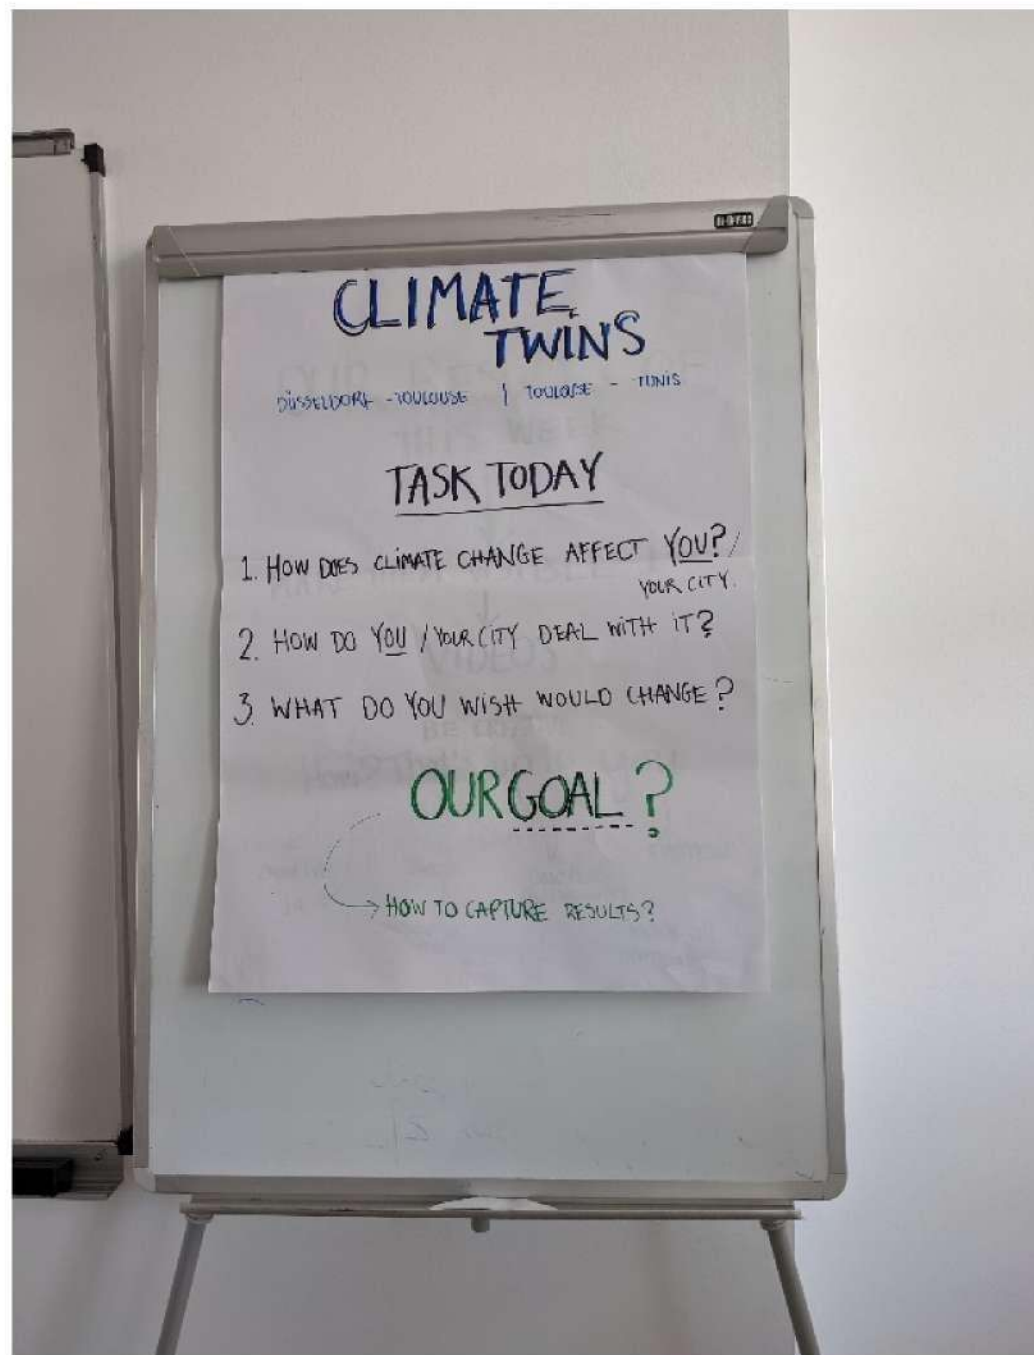 CLIMATE
TWINS
DÜSSELDORF - TOULOUSE | TOULOUSE - TUNIS
TASK TODAY
1. HOW DOES CLIMATE CHANGE AFFECT YOU? /
YOUR CITY.
2. HOW DO YOU / YOUR CITY DEAL WITH IT?
3. WHAT DO YOU WISH WOULD CHANGE?
OUR GOAL?
→ HOW TO CAPTURE RESULTS?